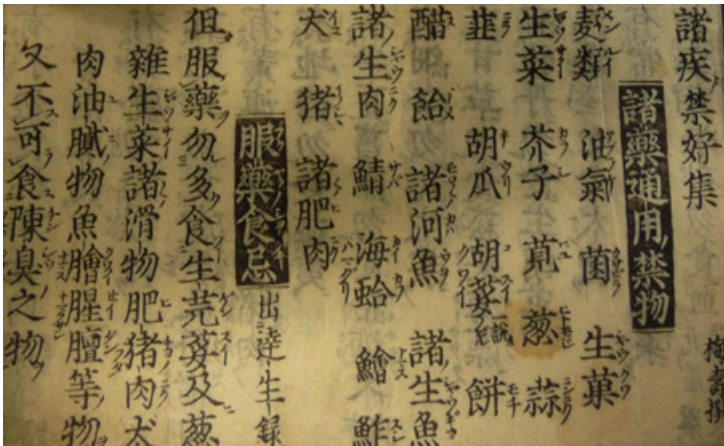 諸疾禁好集
諸藥通用ノ禁物
麪類 油氣 菌 生菓
生菜 芥子 莧 葱 蒜
韮 胡瓜 胡荽 餅
醋 飴 諸河魚 諸生魚
諸生肉 鯖 海蛤 鱠 鮓
犬 猪 諸肥肉
服藥食忌 出達生録
但服藥勿多食生芫荽及葱
雜生菜諸滑物肥猪肉犬
肉油膩物魚膾腥膻等物
又不可食陳臭之物